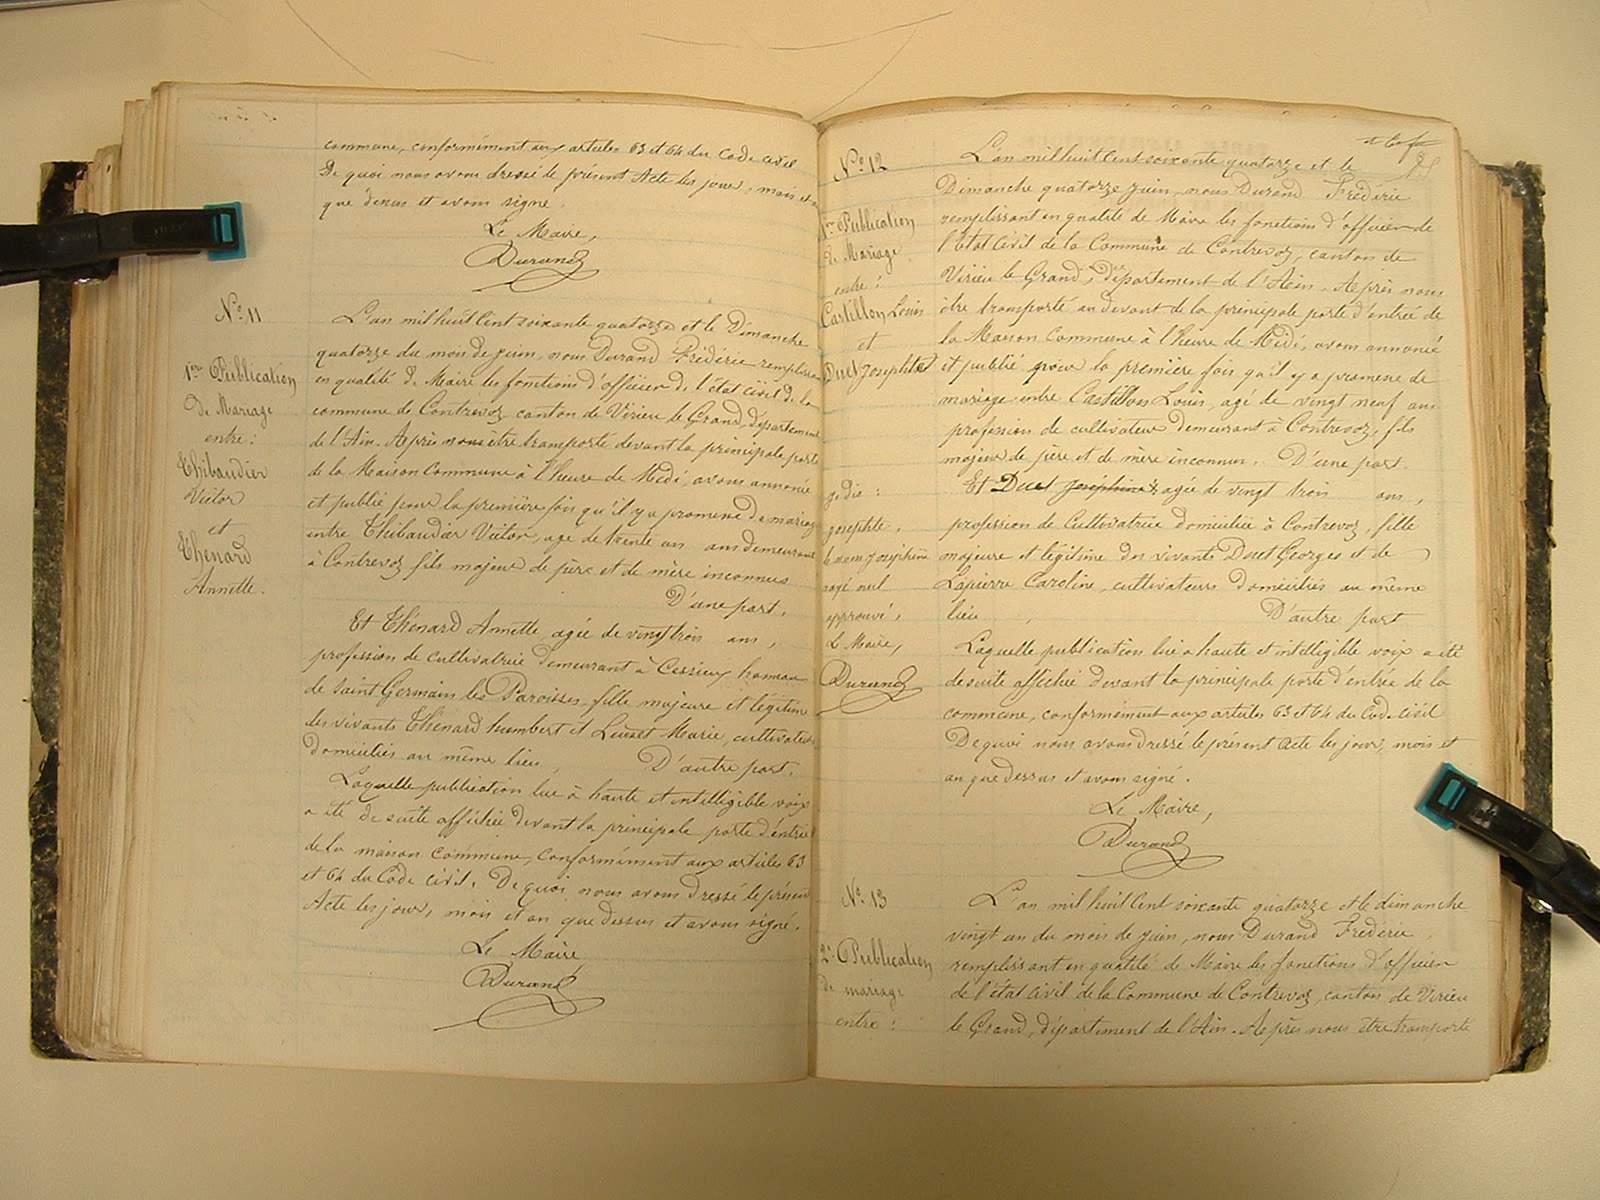 commune, conformément aux articles 63 et 64 du Code civil
De quoi nous avons dressé le présent Acte les jour, mois et
que dessus et avons signé.
Le Maire,
Durand
N° 11
1ère Publication
de Mariage
entre :
Thibaudier
Victor
et
Thenard
Annette.
L'an mil huit Cent soixante quatorze et le Dimanche
quatorze du mois de juin, nous Durand Frédéric remplissant
en qualité de Maire les fonctions d'officier de l'état civil de la
commune de Contrevoz canton de Virieu le Grand, département
de l'Ain. Après nous être transporté devant la principale porte
de la Maison Commune à l'heure de Midi, avons annoncé
et publié pour la première fois qu'il y a promesse de mariage
entre Thibaudier Victor, agé de trente ans ans demeurant
à Contrevoz fils majeur de père et de mère inconnus
D'une part.
Et Thénard Annette agée de vingt trois ans,
profession de cultivatrice demeurant à Cessieux hameau
de Saint Germain les Paroisses, fille majeure et légitime
des vivants Thenard humbert et Marie, cultivateurs
domiciliés au même lieu, D'autre part.
Laquelle publication lue à haute et intelligible voix
a été de suite affichée devant la principale porte d'entrée
de la maison commune, conformément aux articles 63
et 64 du Code civil. De quoi nous avons dressé le présent
Acte les jour, mois et an que dessus et avons signé.
Le Maire
Durand
N° 12
1ère Publication
de Mariage
entre :
Castillon Louis
et
Duet Josephte
L'an mil huit Cent soixante quatorze et le
Dimanche quatorze juin, nous Durand Frédéric
remplissant en qualité de Maire les fonctions d'officier de
l'état Civil de la Commune de Contrevoz, canton de
Virieu le Grand, département de l'Ain. Après nous
être transporté au devant de la principale porte d'entrée de
la Maison Commune à l'heure de Midi, avons annoncé
et publié pour la première fois qu'il y a promesse de
mariage entre Castillon Louis, agé de vingt neuf ans
profession de cultivateur demeurant à Contrevoz, fils
majeur de père et de mère inconnus. D'une part.
Et Duet Josephine agée de vingt trois ans,
profession de Cultivatrice domiciliée à Contrevoz, fille
majeure et légitime des vivants Duet Georges et de
Lapierre Caroline, cultivateurs domiciliés au même
lieu, D'autre part
Josephte.
le nom Josephine
rayé nul
approuvé,
Le Maire,
Durand
Laquelle publication lue à haute et intelligible voix a été
de suite affichée devant la principale porte d'entrée de la
commune, conformément aux articles 63 et 64 du Code civil
De quoi nous avons dressé le présent acte les jour, mois et
an que dessus et avons signé.
Le Maire,
Durand
N° 13
2e Publication
de mariage
entre :
L'an mil huit Cent soixante quatorze et le dimanche
vingt un du mois de juin, nous Durand Frédéric
remplissant en qualité de Maire les fonctions d'officier
de l'état Civil de la Commune de Contrevoz, canton de Virieu
le Grand, département de l'Ain. Après nous être transporté